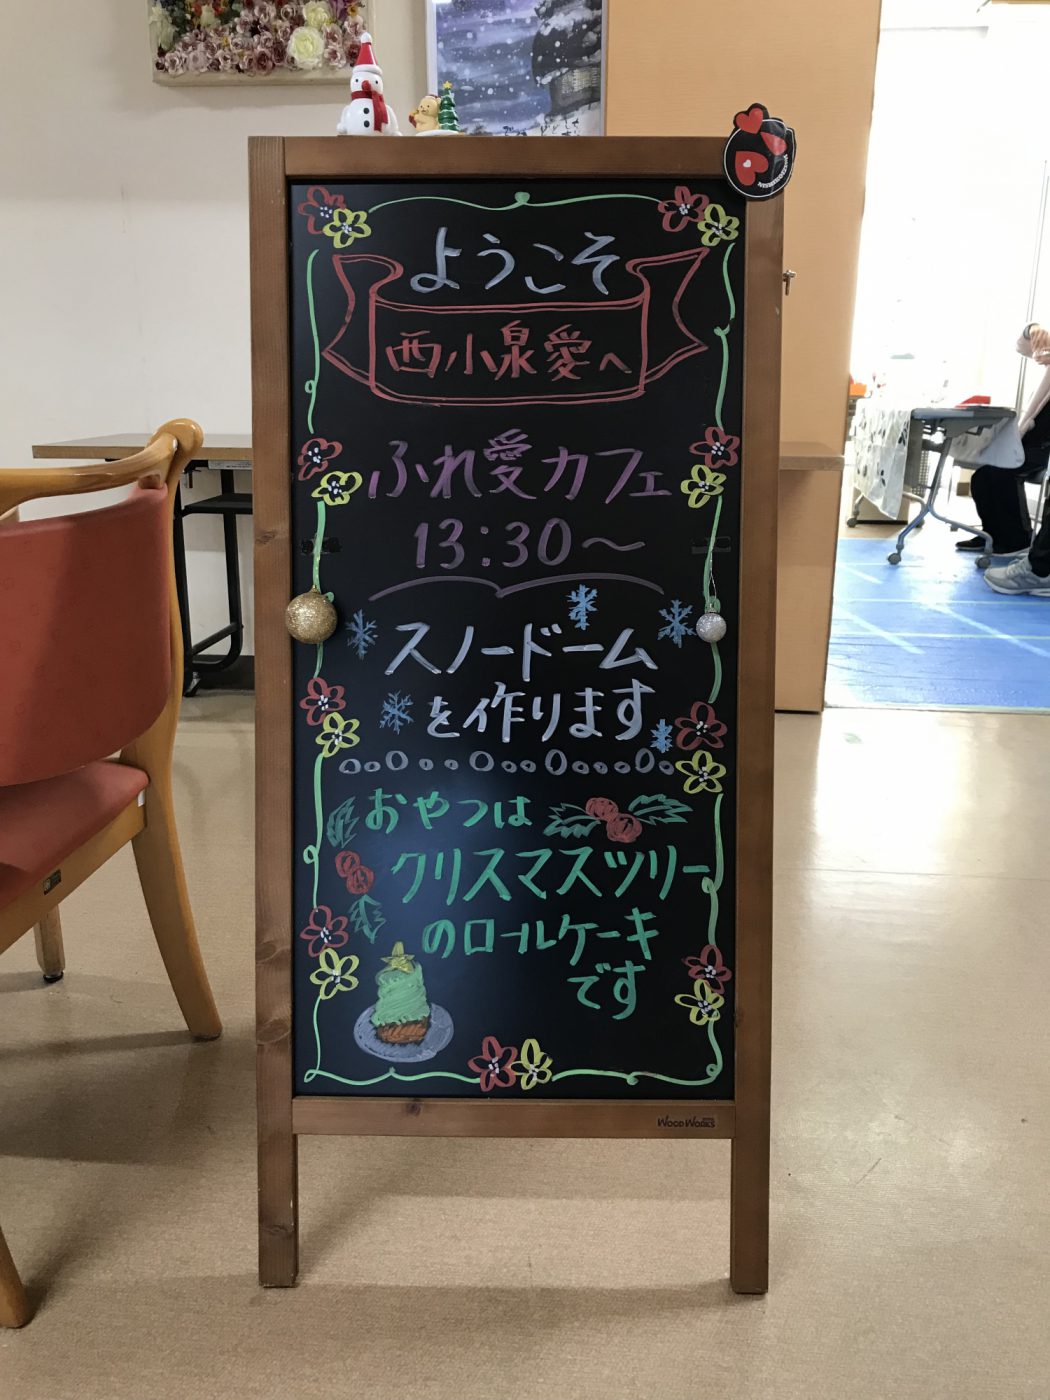 ようこそ
西小泉愛へ
ふれ愛カフェ
13:30～
スノードーム
を作ります
おやつは
クリスマスツリー
のロールケーキ
です
WOOD WORKS